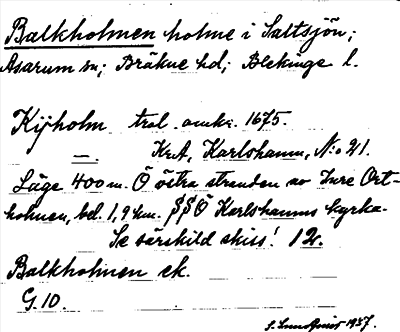 Balkholmen holme i Saltsjön;
Asarum sn; Bräkne hd; Blekinge l.
Kijholm trol. omkr. 1675.
—„— KrA, Karlshamn, N:o 21.
Läge 400 m. Ö östra stranden av Inre Ort-
holmen, bel. 1,9 km. SSÖ Karlshamns kyrka.
Se särskild skiss! 12.
Balkholmen ek.
G. 10.
S. Lundqvist 1937.